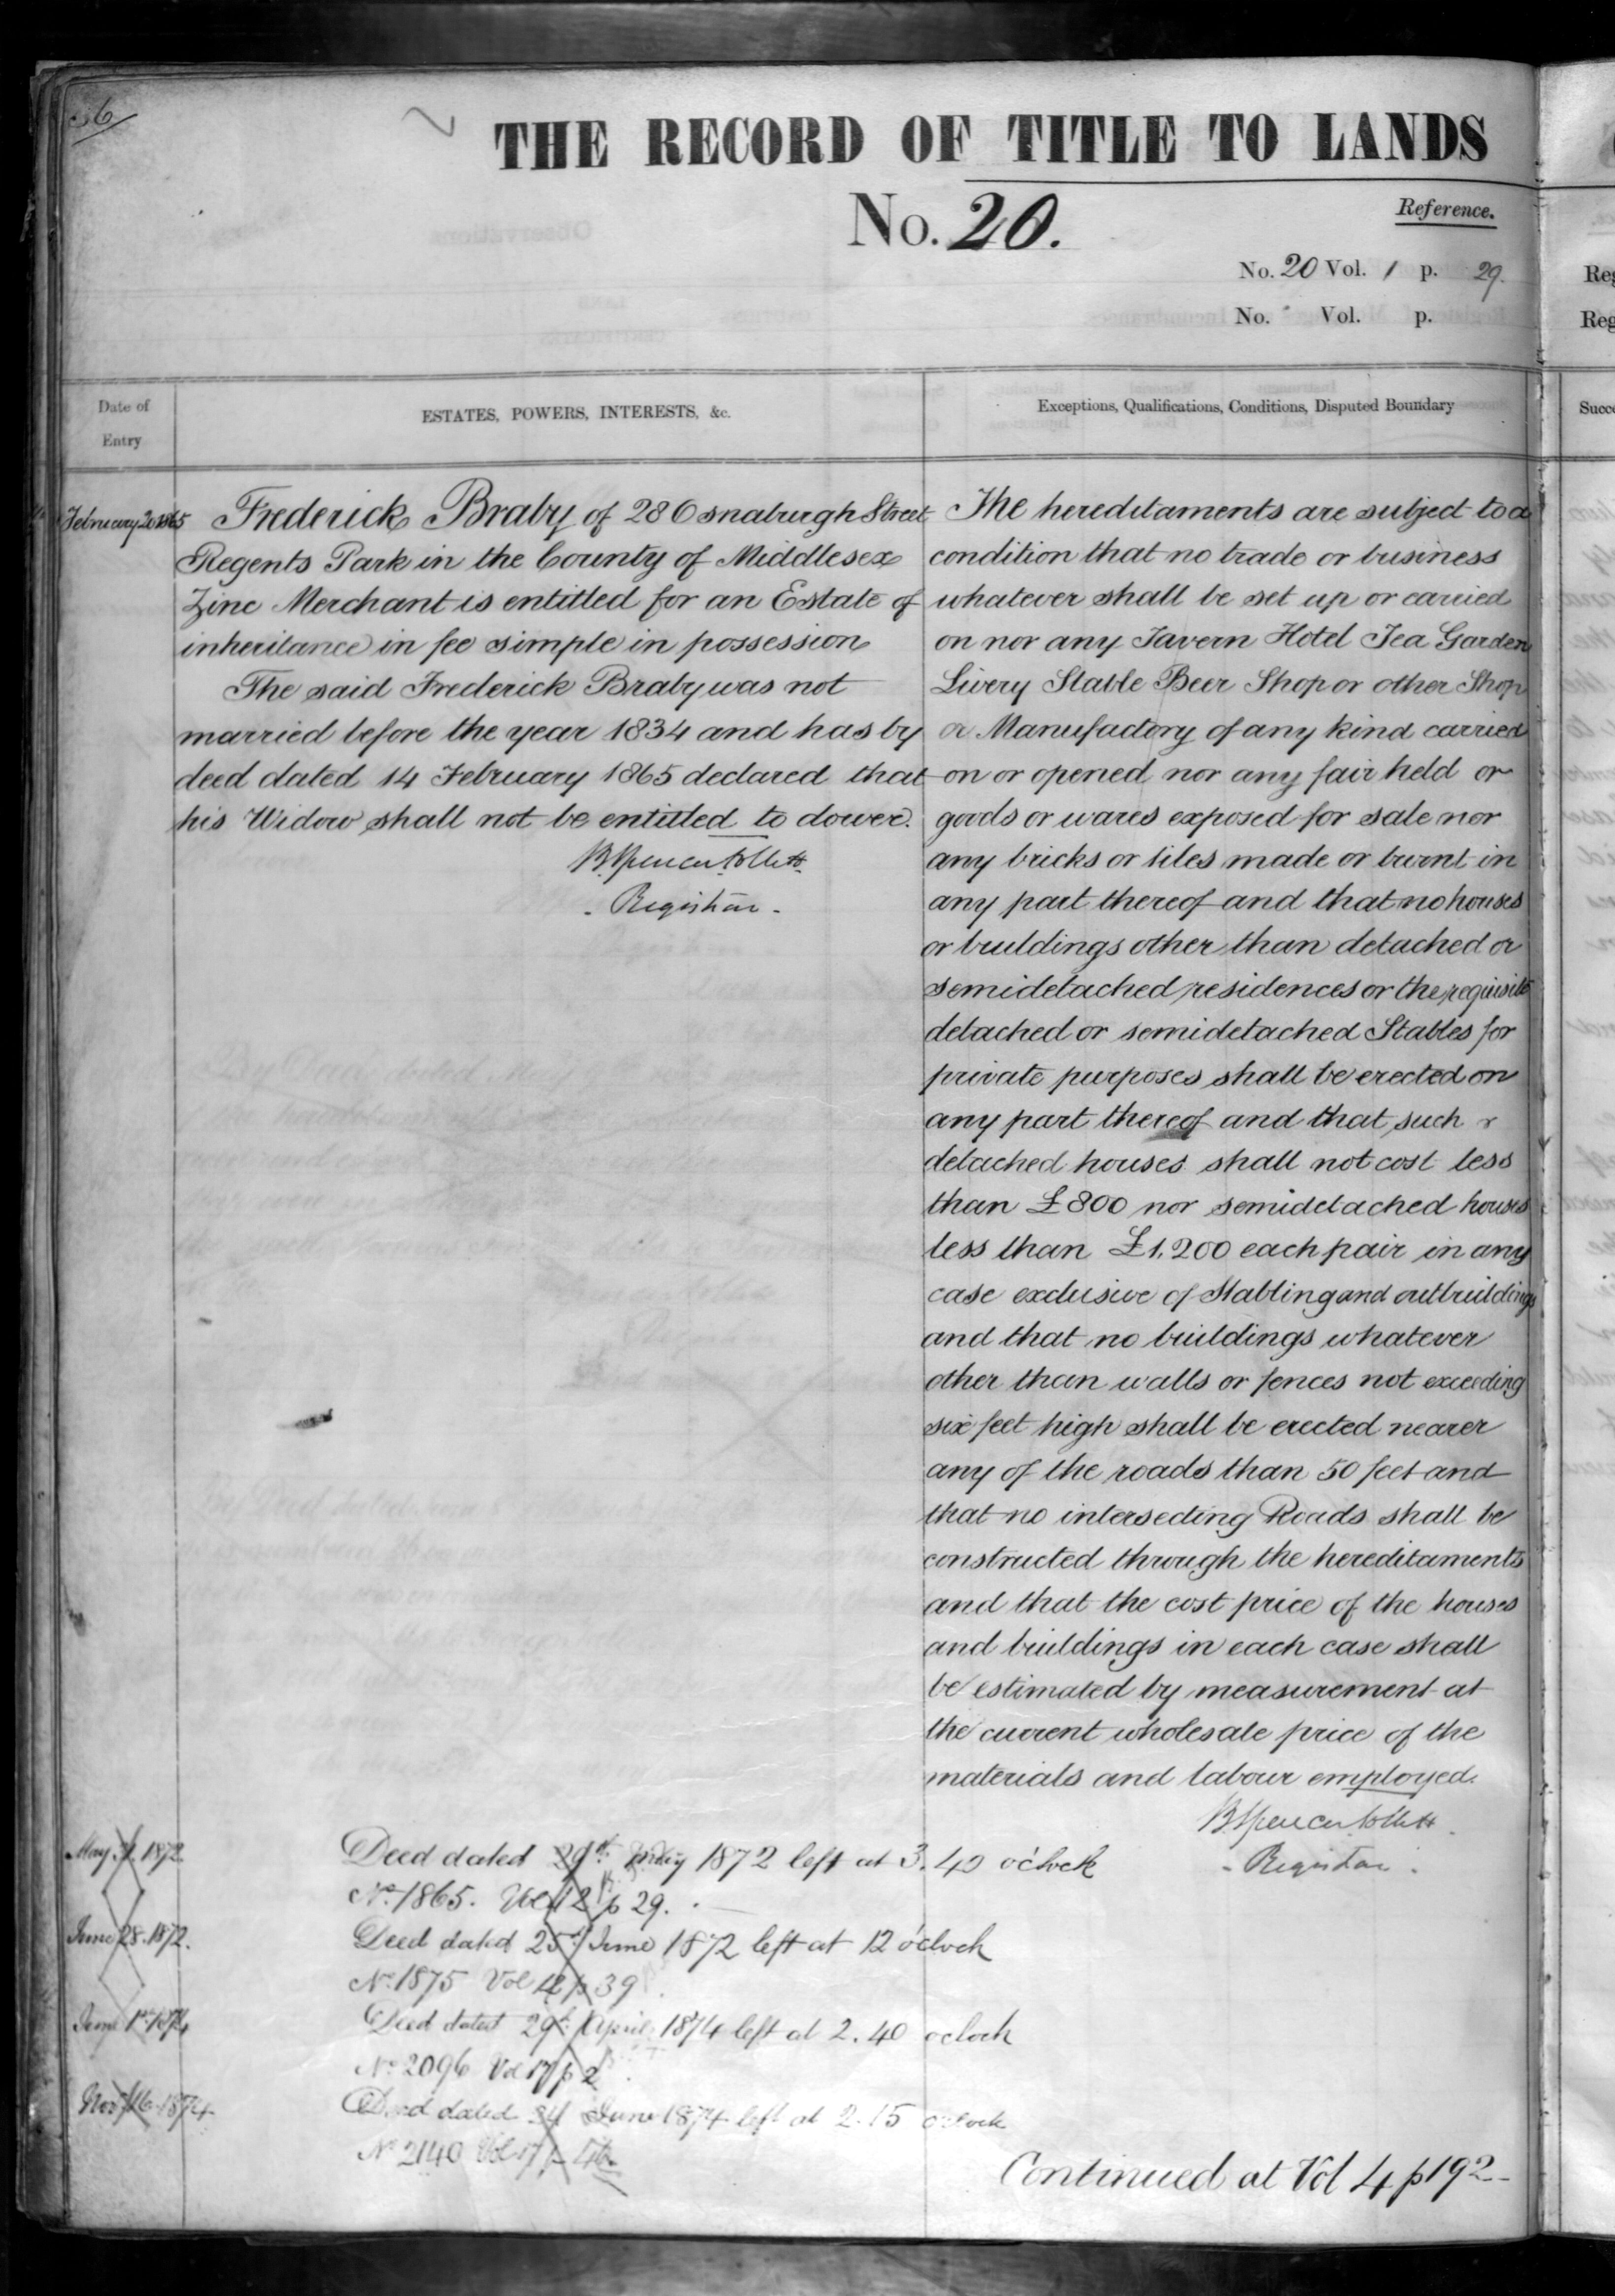 36
THE RECORD OF TITLE TO LANDS
No. 20.
Reference.
No. 20 Vol. 1 p. 29.
No. Vol. p.
Date of
Entry
ESTATES, POWERS, INTERESTS, &c.
Exceptions, Qualifications, Conditions, Disputed Boundary
February 20 1865
Frederick Braby of 28 Osnaburgh Street
Regents Park in the County of Middlesex
Zinc Merchant is entitled for an Estate of
inheritance in fee simple in possession
The said Frederick Braby was not
married before the year 1834 and has by
deed dated 14 February 1865 declared that
his Widow shall not be entitled to dower.
B. Spencer Follett
- Registrar -
The hereditaments are subject to a
condition that no trade or business
whatever shall be set up or carried
on nor any Tavern Hotel Tea Garden
Livery Stable Beer Shop or other Shop
or Manufactory of any kind carried
on or opened nor any fair held or
goods or wares exposed for sale nor
any bricks or tiles made or burnt in
any part thereof and that no houses
or buildings other than detached or
semidetached residences or the requisite
detached or semidetached Stables for
private purposes shall be erected on
any part thereof and that such
detached houses shall not cost less
than £800 nor semidetached houses
less than £1,200 each pair in any
case exclusive of Stabling and outbuildings
and that no buildings whatever
other than walls or fences not exceeding
six feet high shall be erected nearer
any of the roads than 50 feet and
that no intersecting Roads shall be
constructed through the hereditaments
and that the cost price of the houses
and buildings in each case shall
be estimated by measurement at
the current wholesale price of the
materials and labour employed.
B. Spencer Follett
- Registrar -
May 31. 1872.
Deed dated 29th May 1872 left at 3.40 o'clock
No. 1865. Vol 12 p 29.
June 28. 1872.
Deed dated 25th June 1872 left at 12 o'clock
No. 1875 Vol 12 p 39
June 1st 1874
Deed dated 29th April 1874 left at 2.40 oclock
No. 2096 Vol 17 p 2
Nov 16 1874
Deed dated 24 June 1874 left at 2.15 o'clock
No. 2140 Vol 17 p 46
Continued at Vol 4 p 192
Reg
Reg
Succe